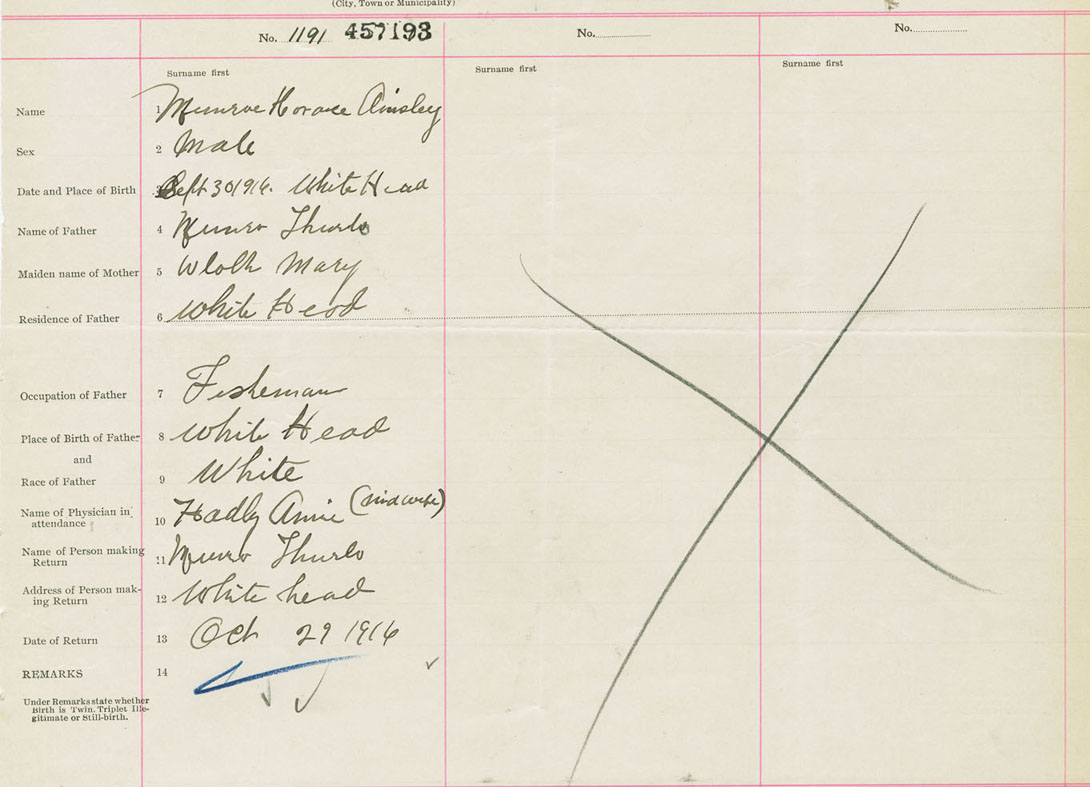 (City, Town or Municipality)
No. 1191 457193
No.
No.
Surname first
Surname first
Surname first
Name 1 Munroe Horace Ainsley
Sex 2 Male
Date and Place of Birth 3 Sept 30 1916. White Head
Name of Father 4 Munro Thurlo
Maiden name of Mother 5 Wloth Mary
Residence of Father 6 White Head
Occupation of Father 7 Fisheman
Place of Birth of Father 8 White Head
and
Race of Father 9 White
Name of Physician in attendance 10 Hadly Annie (Midwife)
Name of Person making Return 11 Munro Thurlo
Address of Person making Return 12 White head
Date of Return 13 Oct 29 1916
REMARKS 14
Under Remarks state whether
Birth is Twin. Triplet Ille-
gitimate or Still-birth.